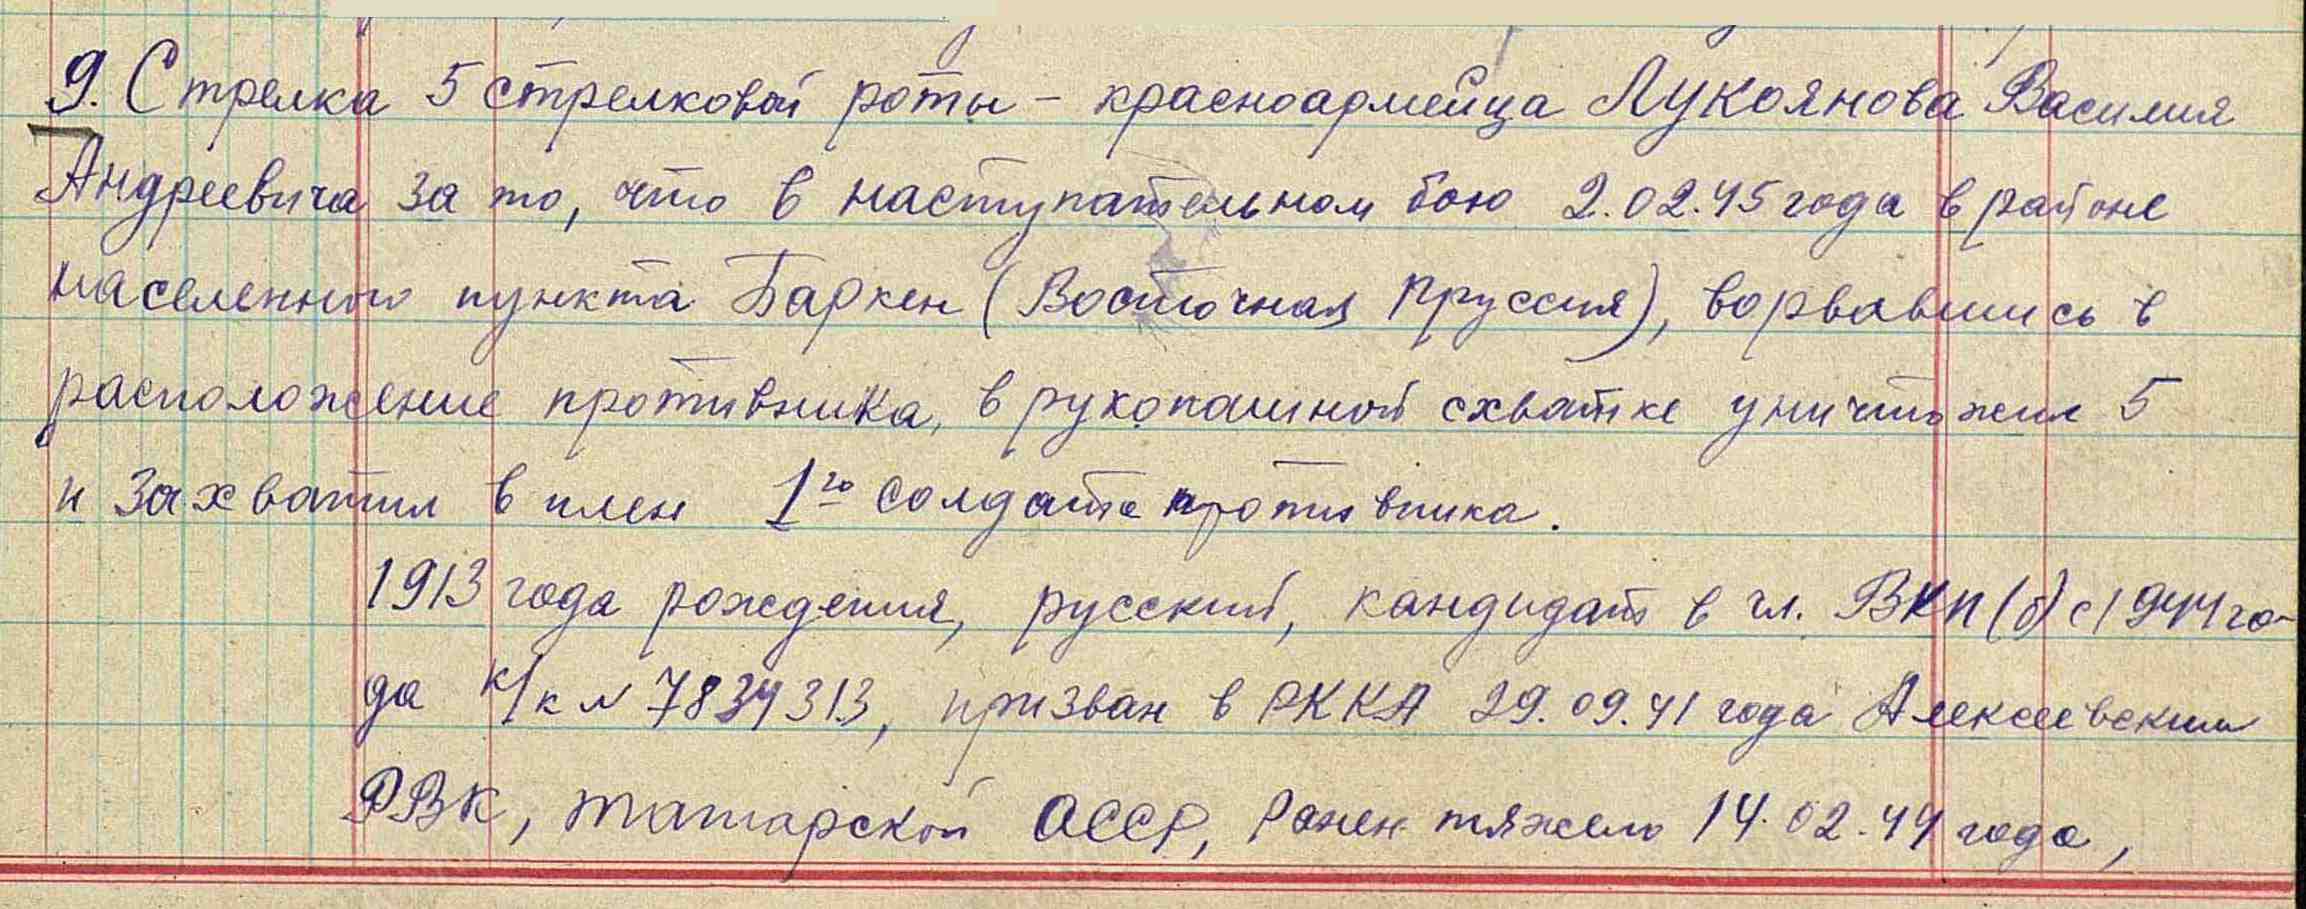 9. Стрелка 5 стрелковой роты - красноармейца Лукоянова Василия
Андреевича за то, что в наступательном бою 2.02.45 года в районе
населенного пункта Баркен (Восточная Пруссия), ворвавшись в
расположение противника, в рукопашной схватке уничтожил 5
и захватил в плен 1го солдата противника.
1913 года рождения, русский, кандидат в чл. ВКП(б) с 1944 го-
да к/к № 7834313, призван в РККА 29.09.41 года Алексеевским
РВК, Татарской АССР, ранен тяжело 14.02.44 года,